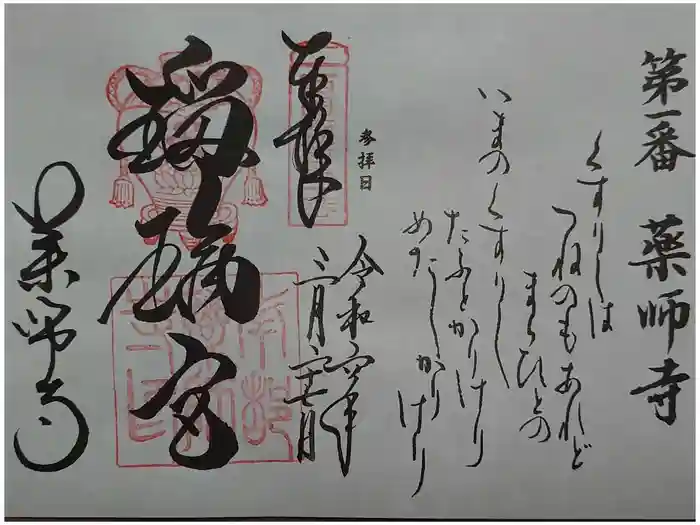 第一番 薬師寺
くすりしは
つねのもあれど
まらひとの
いまのくすりし
たふとかりけり
めだしかりけり
参拝日
令和六年
三月二十七日
奉拝
瑠璃宮
薬師寺